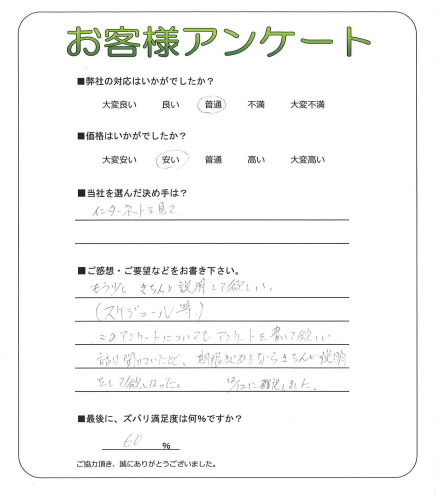 お客様アンケート
■弊社の対応はいかがでしたか？
大変良い 良い 普通 不満 大変不満
■価格はいかがでしたか？
大変安い 安い 普通 高い 大変高い
■当社を選んだ決め手は？
インターネットを見て
■ご感想・ご要望などをお書き下さい。
もう少しきちんと説明して欲しい。
（スケジュール等）
このアンケートについてもアンケートを書いて欲しい
話は聞いていたけど、期限があるならきちんと説明
をして欲しかった。 に確認しました。
■最後に、ズバリ満足度は何%ですか？
60 %
ご協力頂き、誠にありがとうございました。